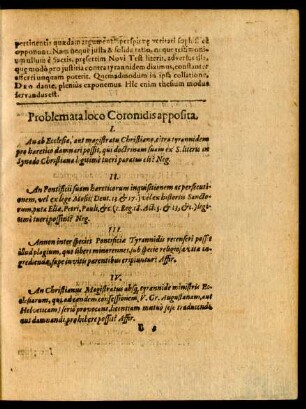 pertinentis quædam argumenta perspicuæ veritati suphicata
opponunt. Nam neque justa & solida ratio, neque testimoni-
um ullum è Sacris, præsertim Novi Test. literis, adversùs illa,
quæ modò pro justitia contra tyrannidem diximus, constanter
asserri unquam poterit. Quemadmodum in ipsa collatione,
DEO dante, pleniùs exponemus. Hic enim thesium modus
servandus est.
Problemata loco Coronidis apposita.
I.
An ab Ecclesia, aut magistratu Christiano, citra tyrannidem
pro hæretico damnari possit, qui doctrinam suam ex S. literis in
Synodo Christiana legitimè tueri paratus est? Neg.
II.
An Pontificii suam hæreticorum inquisitionem et persecuti-
onem, vel ex lege Mosis, Deut. 13 & 17. vel ex historiis Sancto-
rum, puta Eliæ, Petri, Pauli, &c. (1. Reg. 18. Act. 5. & 13, &c.) legi-
timè tueri possint? Neg.
III.
Annon inter species Pontificiæ Tyrannidis recenseri possit
illud plagium, quo liberi minorennes, sub specie religiosæ vitæ in-
grediendæ, sæpe invitis parentibus eripiuntur? Affir.
IV.
An Christianus Magistratus absq; tyrannide ministris Ec-
clesiarum, qui ad eandem confessionem, V. Gr. Augustanam, aut
Helveticam, seriò provocant, licentiam mutuò sese traducendi
ac damnandi, prohibere possit? Affir.
B